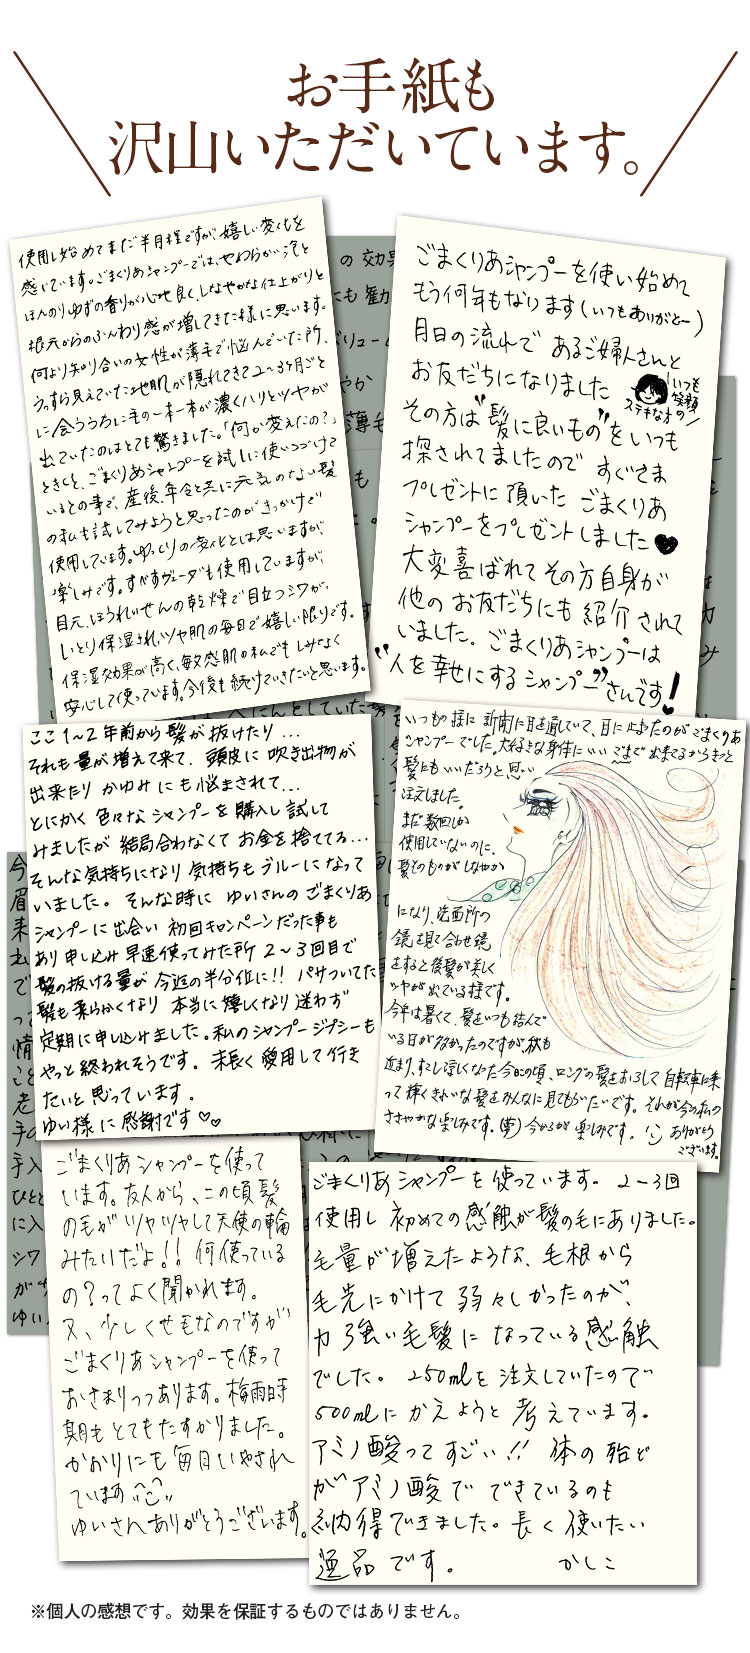 お手紙も
沢山いただいています。
使用し始めてまだ半月程ですが嬉しい変化を
感じています。ごまくりあシャンプーでは、やわらかい泡と
ほんのりゆずの香りが心地良く、しなやかな仕上がりと
根元からのふんわり感が増してきた様に思います。
何より知り合いの女性が薄毛で悩んでいた所、
うっすら見えていた地肌が隠れてきて2〜3ヶ月ごと
に会ううちに毛の一本一本が濃くハリとツヤが
出ていたのはとても驚きました。「何か変えたの?」
ときくと、ごまくりあシャンプーを試しに使いつづけて
いるとの事で、産後、年令と共に元気のない髪
の私も試してみようと思ったのがきっかけで
使用しています。ゆっくりの変化とは思いますが、
楽しみです。すべすヴェーダも使用していますが、
目元、ほうれいせんの乾燥で目立つシワが、
しっとり保湿され、ツヤ肌の毎日で嬉しい限りです。
保湿効果が高く、敏感肌の私でもしみなく
安心して使っています。今後も続けていきたいと思います。
ごまくりあシャンプーを使い始めて
もう何年もなります(いつもありがとー)
月日の流れで あるご婦人さんと
お友だちになりました
いつも
笑顔の
ステキな方
その方は"髪に良いもの"をいつも
探されてましたので すぐさま
プレゼントに頂いた ごまくりあ
シャンプーをプレゼントしました♥
大変喜ばれてその方自身が
他のお友だちにも紹介されて
いました。ごまくりあシャンプーは
"人を幸せにするシャンプー"さんです!
ここ1〜2年前から髪が抜けたり...
それも量が増えて来て、頭皮に吹き出物が
出来たりかゆみにも悩まされて...
とにかく色々なシャンプーを購入し試して
みましたが結局合わなくてお金を捨ててる...
そんな気持ちになり気持ちもブルーになって
いました。そんな時に ゆいさんのごまくりあ
シャンプーに出会い 初回キャンペーンだった事も
あり申し込み早速使ってみた所2〜3回目で
髪の抜ける量が今迄の半分位に!! パサついてた
髪も柔らかくなり本当に嬉しくなり迷わず
定期に申し込みました。私のシャンプージプシーも
やっと終われそうです。末長く愛用して行き
たいと思っています。
ゆい様に感謝です♡♡
いつもの様に新聞に目を通していて、目に止まったのがごまくりあ
シャンプーでした。大好きな身体にいいごまで出来てるからきっと
髪にもいいだろうと思い
注文しました。
まだ数回しか
使用していないのに、
髪そのものがしなやか
になり、洗面所の
鏡を見て合わせ鏡
をすると後髪が美しく
ツヤが出ている様です。
今年は暑くて、髪をいつも結んで
いる日が多かったのですが、秋も
近まり、すこし涼しくなった今日この頃、ロングの髪をおろして自転車に乗
って輝くきれいな髪をみんなに見てもらいたいです。それが今の私の
ささやかな楽しみです。(笑)今からが楽しみです。ありがとう
ございます。
ごまくりあシャンプーを使って
います。友人から、この頃髪
の毛がツヤツヤして天使の輪
みたいだよ!!何使っている
の?ってよく聞かれます。
又、少しくせ毛なのですが
ごまくりあシャンプーを使って
おさまりつつあります。梅雨時
期もとてもたすかりました。
かおりにも毎日いやされ
ています
ゆいさんありがとうございます。
ごまくりあシャンプーを使っています。2〜3回
使用し初めての感触が髪の毛にありました。
毛量が増えたような、毛根から
毛先にかけて弱々しかったのが、
力強い毛髪になっている感触
でした。250mlを注文していたので
500mlにかえようと考えています。
アミノ酸ってすごい!!体の殆ど
がアミノ酸でできているのも
納得できました。長く使いたい
逸品です。 かしこ
※個人の感想です。効果を保証するものではありません。